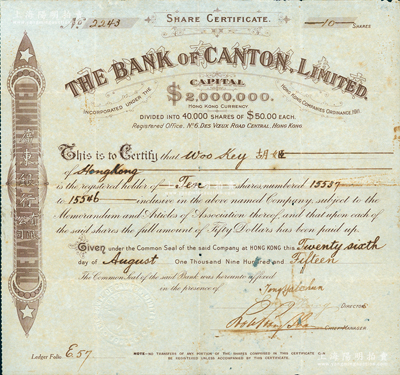 SHARE CERTIFICATE.
No 2243
10 SHARES
THE BANK OF CANTON, LIMITED.
INCORPORATED UNDER THE
HONG KONG COMPANIES ORDINANCE 1911
CAPITAL
$2,000,000.
HONG KONG CURRENCY
DIVIDED INTO 40,000 SHARES OF $50.00 EACH.
Registered Office, No 6, DES VŒUX ROAD CENTRAL, HONG KONG
This is to Certify that Woo Key
of Hongkong
is the registered holder of Ten shares, numbered 15537
to 15546 inclusive in the above named Company, subject to the
Memorandum and Articles of Association thereof and that upon each of
the said shares the full amount of Fifty Dollars has been paid up.
Given under the Common Seal of the said Company at HONG KONG this Twenty sixth
day of August One Thousand Nine Hundred and Fifteen
The Common Seal of the said Bank was hereunto affixed
in the presence of
DIRECTORS
CHIEF MANAGER
Ledger Folio E.57
NOTE:-NO TRANSFERS OF ANY PORTION OF THE SHARES COMPRISED IN THIS CERTIFICATE CAN
BE REGISTERED UNLESS ACCOMPANIED BY THIS CERTIFICATE.